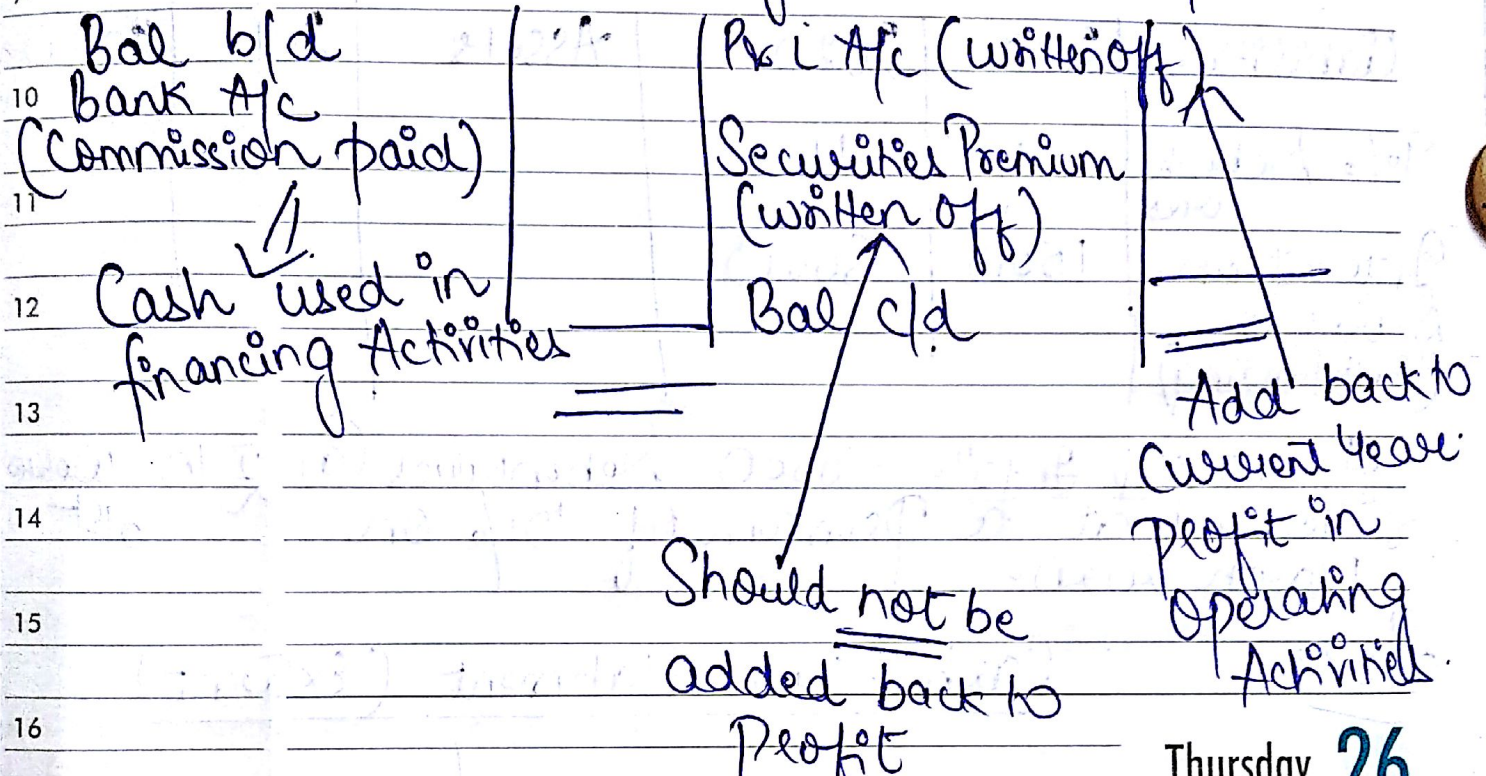 Bal b/d
10 Bank A/c
(Commission paid)
11
Cash used in
12
financing Activities
13
14
15
16
P & L A/c (written off)
Securities Premium
(written off)
Bal c/d
Should not be
added back to
Profit
Add back to
Current Year
profit in
Operating
Activities.
Thursday 26